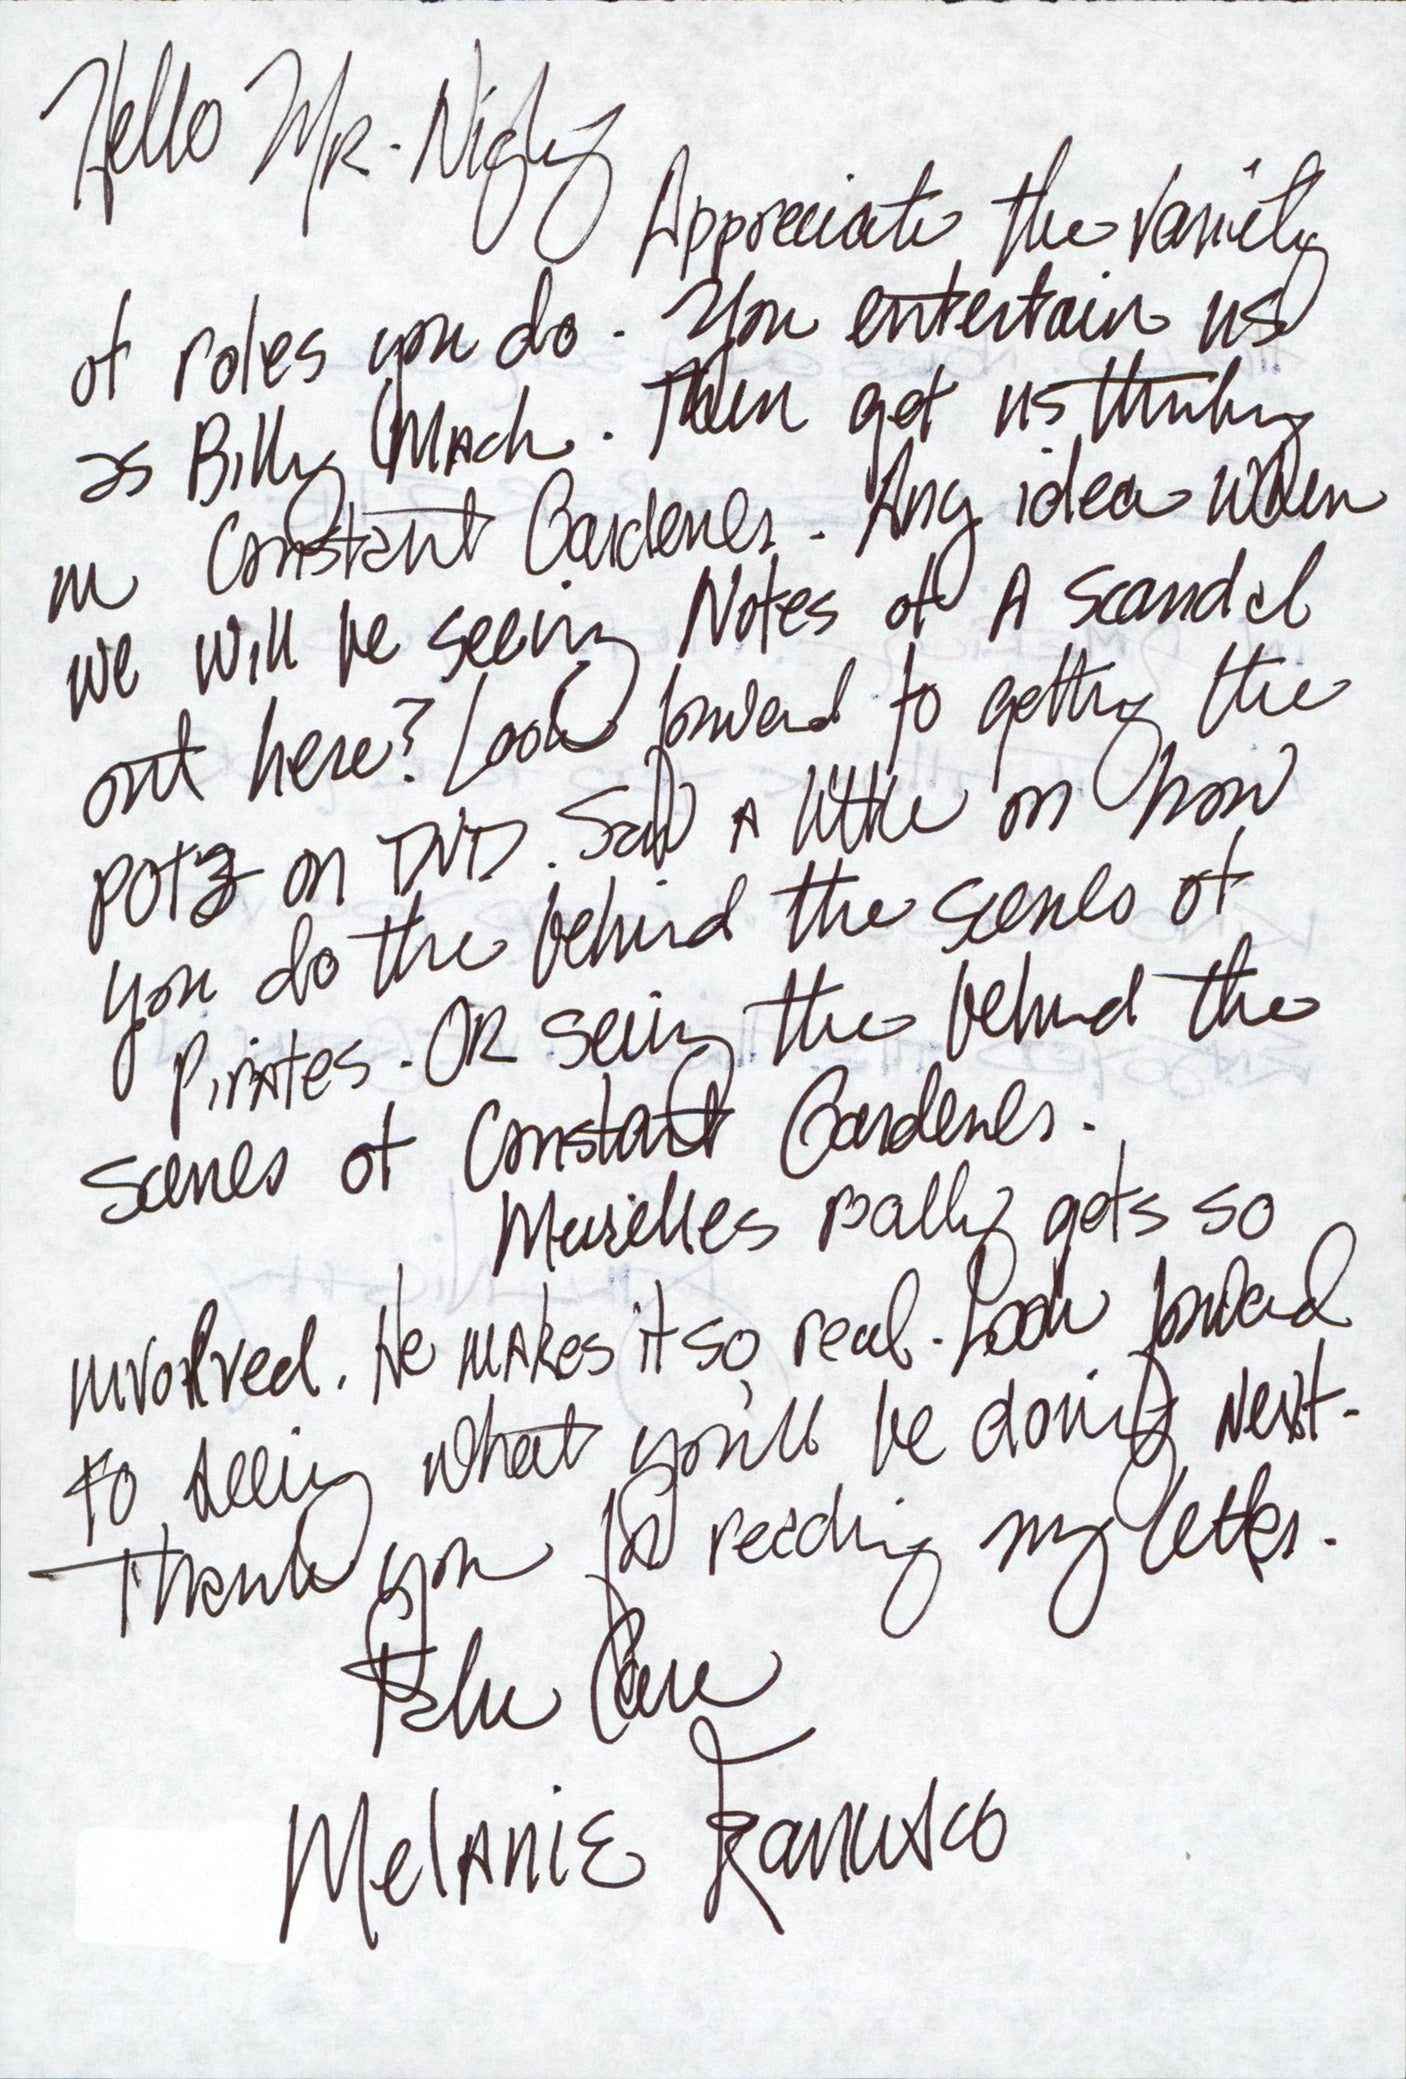 Hello Mr. Nighy
Appreciate the variety
of roles you do. You entertain us
as Billy Mack. Then get us thinking
in Constant Gardener. Any idea when
we will be seeing Notes of A Scandal
out here? Look forward to getting the
POT2 on DVD. Saw A little on how
you do the behind the scenes of
Pirates. OR seeing the behind the
scenes of Constant Gardener.
Meirelles really gets so
involved. He makes it so real. Look forward
to seeing what you'll be doing next.
Thank you for reading my letter.
Take Care
Melanie